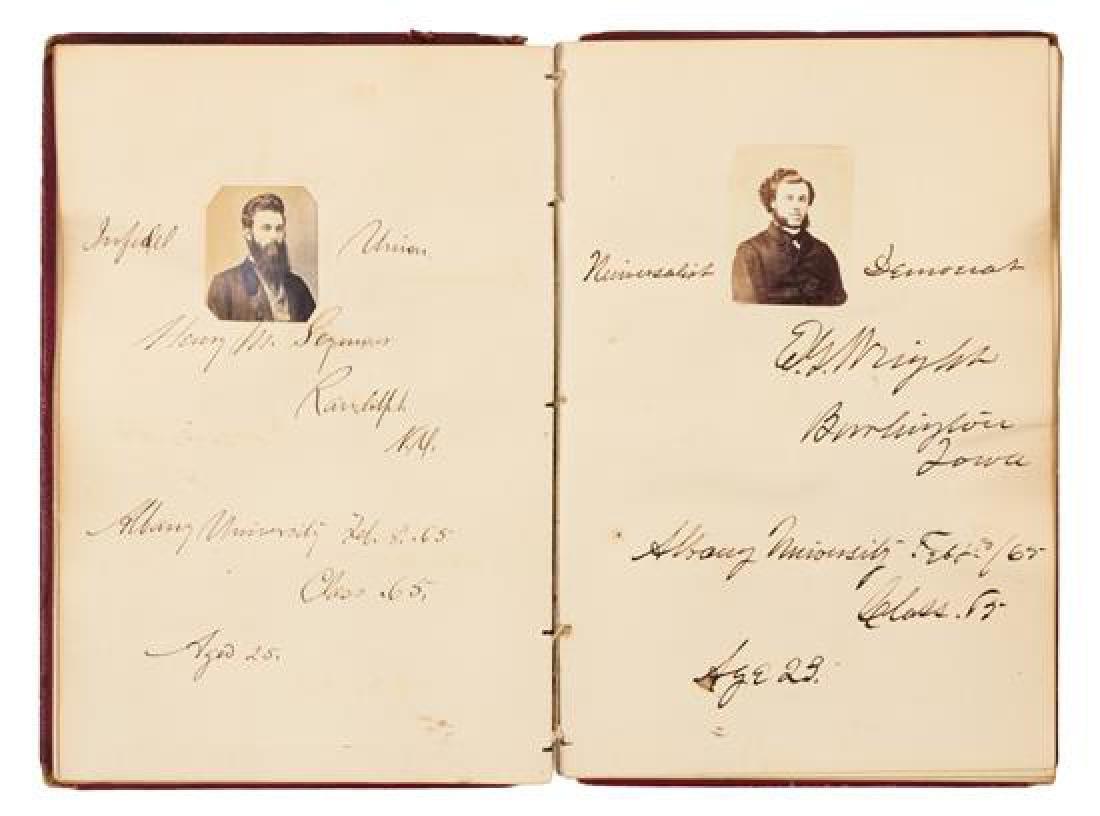 Infidel Union
Henry M. Seymour
Randolph
N.Y.
Albany University Feb. 8. 65
Class .65.
Aged 25.
Universalist Democrat
Wright
Burlington
Iowa
Albany University /65
Class. 65
Age 23.